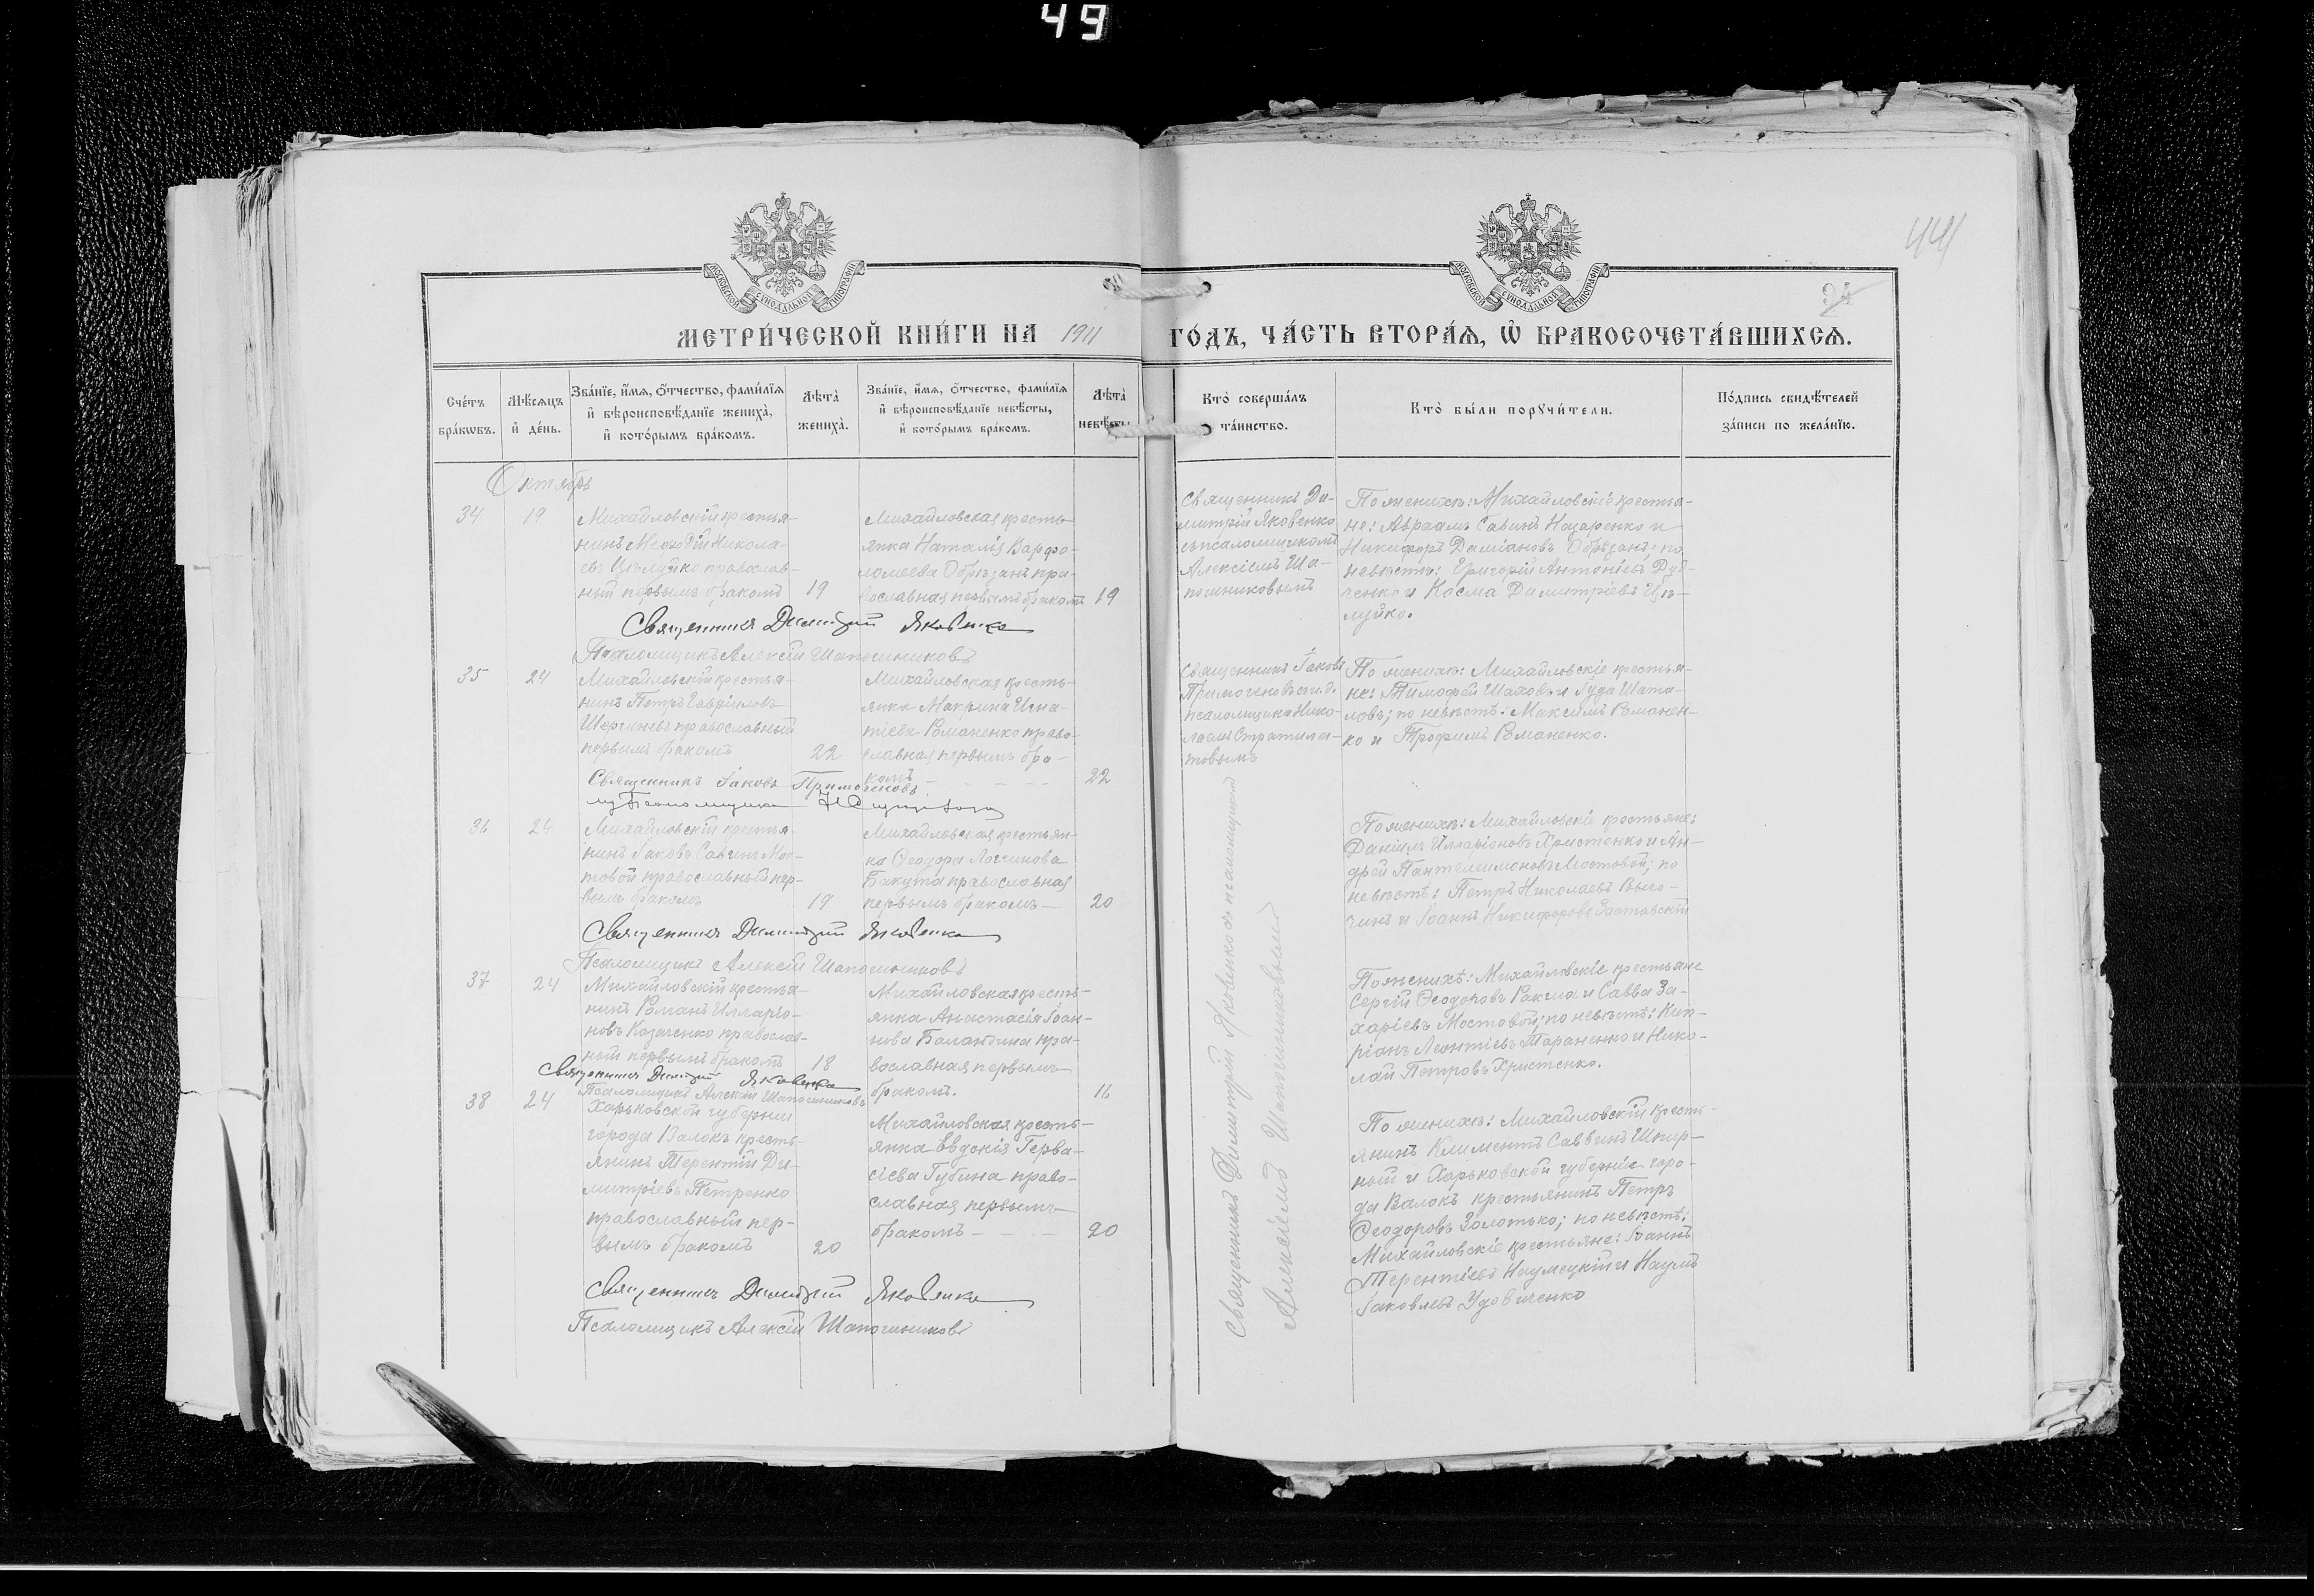 49
441
94
МОСКОВСКОЙ СѴНОДАЛЬНОЙ ТИПОГРАФІИ
МОСКОВСКОЙ СѴНОДАЛЬНОЙ ТИПОГРАФІИ
МЕТРИ́ЧЕСКОЙ КНИ́ГИ НА 1911 ГО́ДЪ, ЧА́СТЬ ВТОРА́Ѧ, Ѽ БРАКОСОЧЕТА́ВШИХСѦ.
Сче́тъ бра́кѡвъ.
Мѣ́сѧцъ и҆ де́нь.
Зва́нїе, и҆́мѧ, ѻ҆́тчество, фами́лїѧ и҆ вѣроисповѣ́данїе жениха̀, и҆ кото́рымъ бра́комъ.
Лѣта̀ жениха̀.
Зва́нїе, и҆́мѧ, ѻ҆́тчество, фами́лїѧ и҆ вѣроисповѣ́данїе невѣ́сты, и҆ кото́рымъ бра́комъ.
Лѣта̀ невѣ́сты.
Кто̀ соверша́лъ та́инство.
Кто̀ бы́ли порꙋчи́тели.
По́дпись свидѣ́телей за́писи по жела́нїю.
Октябрь
34 19
Михайловскій крестья-
нинъ Меѳодій Никола-
евъ Цѣлуйко православ-
ный первымъ бракомъ 19
Михайловская кресть-
янка Наталія Варѳо-
ломеева Обрѣзанъ пра-
вославная первымъ бракомъ 19
Священникъ Ди-
митрій Яковенко
съ псаломщикомъ
Алексіемъ Ша-
пошниковымъ
По женихѣ: Михайловскіе крестья-
не: Авраамъ Савинъ Назаренко и
Никифоръ Даміановъ Обрѣзанъ; по
невѣстѣ: Григорій Антоніевъ Дуд-
ченко и Косма Димитріевъ Цѣ-
луйко.
Священникъ Димитрій Яковенко
Псаломщикъ Алексій Шапошниковъ
35 24
Михайловскій крестья-
нинъ Петръ Гавріиловъ
православный
первымъ бракомъ 22
Михайловская кресть-
янка Макрина Игна-
тіева Романенко право-
славная первымъ бра-
комъ 22
Священникъ Іаковъ
съ и. д.
псаломщика Нико-
лаемъ Стратила-
товымъ
По женихѣ: Михайловскіе крестья-
не: Тимофей Шаховъ и Іуда Шата-
ловъ; по невѣстѣ: Максимъ Романен-
ко и Трофимъ Романенко.
Священникъ Іаковъ
36 24
Михайловскій крестья-
нинъ Іаковъ Савинъ Мос-
товой православный пер-
вымъ бракомъ 19
Михайловская крестьян-
ка Ѳеодора Логгинова
Бакута православная
первымъ бракомъ 20
По женихѣ: Михайловскіе крестьяне:
Даніилъ Илларіоновъ Христенко и Ан-
дрей Пантелеимоновъ Мостовой; по
невѣстѣ: Петръ Николаевъ
и Іоаннъ Никифоровъ Заставскій
Священникъ Димитрій Яковенко
Псаломщикъ Алексій Шапошниковъ
37 24
Михайловскій крестья-
нинъ Романъ Илларіо-
новъ Козаченко православ-
ный первымъ бракомъ 18
Михайловская кресть-
янка Анастасія Іоан-
нова Баландина пра-
вославная первымъ
бракомъ. 16
По женихѣ: Михайловскіе крестьяне
Сергій Ѳеодоровъ и Савва За-
харіевъ Мостовой; по невѣстѣ: Кип-
ріанъ Леонтіевъ Тараненко и Нико-
лай Петровъ Христенко.
Священникъ Димитрій Яковенко
Псаломщикъ Алексій Шапошниковъ
38 24
Харьковской губерніи
города Валокъ кресть-
янинъ Терентій Ди-
митріевъ Петренко
православный пер-
вымъ бракомъ 20
Михайловская кресть-
янка Евдокія Герва-
сіева Губина право-
славная первымъ
бракомъ 20
По женихѣ: Михайловскій кресть-
янинъ Климентъ Саввинъ
и Харьковской губерніи горо-
да Валокъ крестьянинъ Петръ
Ѳеодоровъ Золотько; по невѣстѣ:
Михайловскіе крестьяне: Іоаннъ
Терентіевъ и Наумъ
Іаковлевъ Удовиченко
Священникъ Димитрій Яковенко съ псаломщикомъ
Алексіемъ Шапошниковымъ
Священникъ Димитрій Яковенко
Псаломщикъ Алексій Шапошниковъ